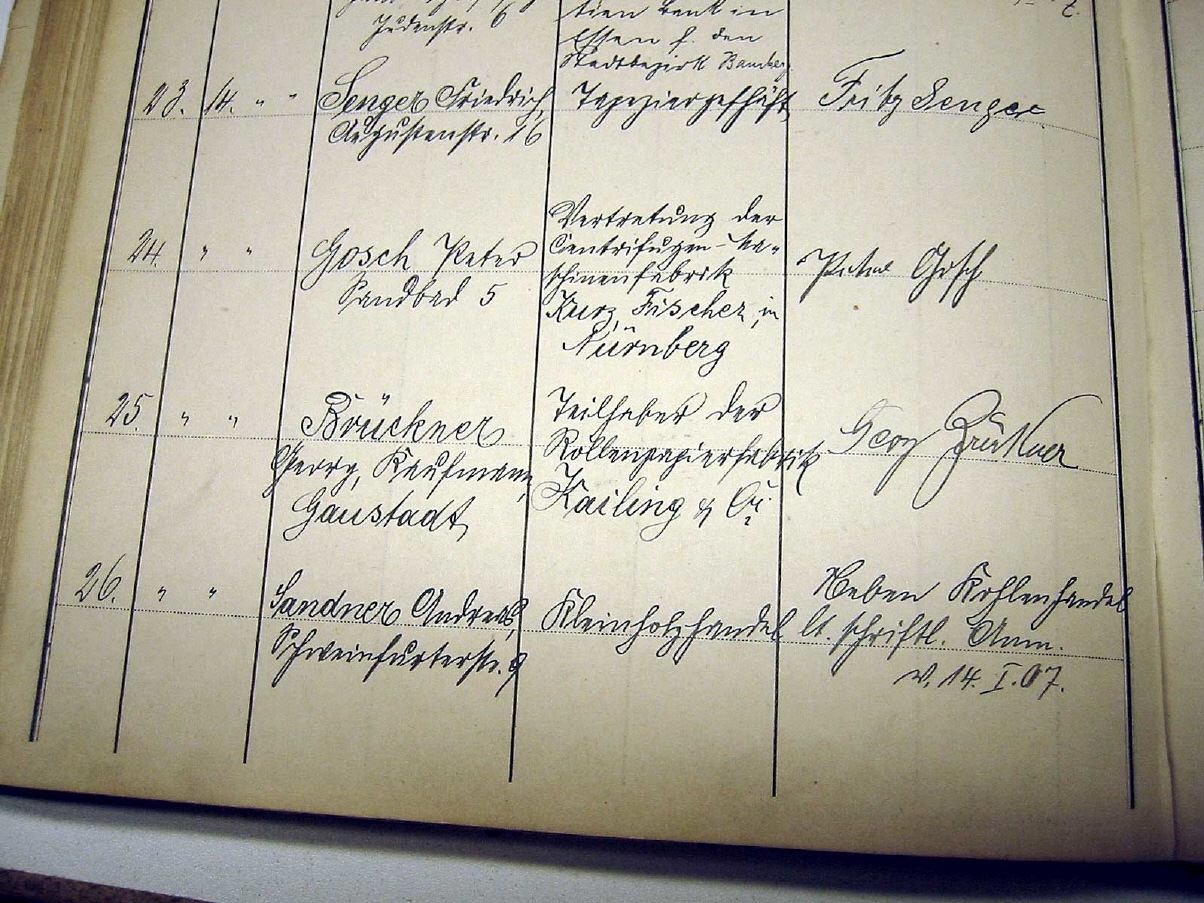 Judenstr. 6
tien bank in
Essen f. den
Stadtbezirk Bamberg
23. 14. " " Senger Friedrich, Tapeziergeschäft Fritz Senger
Augustenstr. 16
24. " " Gosch Peter Vertretung der Peter Gosch
Sandbad 5 Centrifugen-Ma-
schinenfabrik
Kurz, Fischer, in
Nürnberg
25 " " Brückner Teilhaber der Georg Brückner
Georg, Kaufmann, Rollenpapierfabrik
Gaustadt Kailing & Co.
26. " " Sandner Andreas, Kleinholzhandel Neben Kohlenhandel
Schweinfurterstr. 9 lt. schriftl. Anm.
v. 14. I. 07.